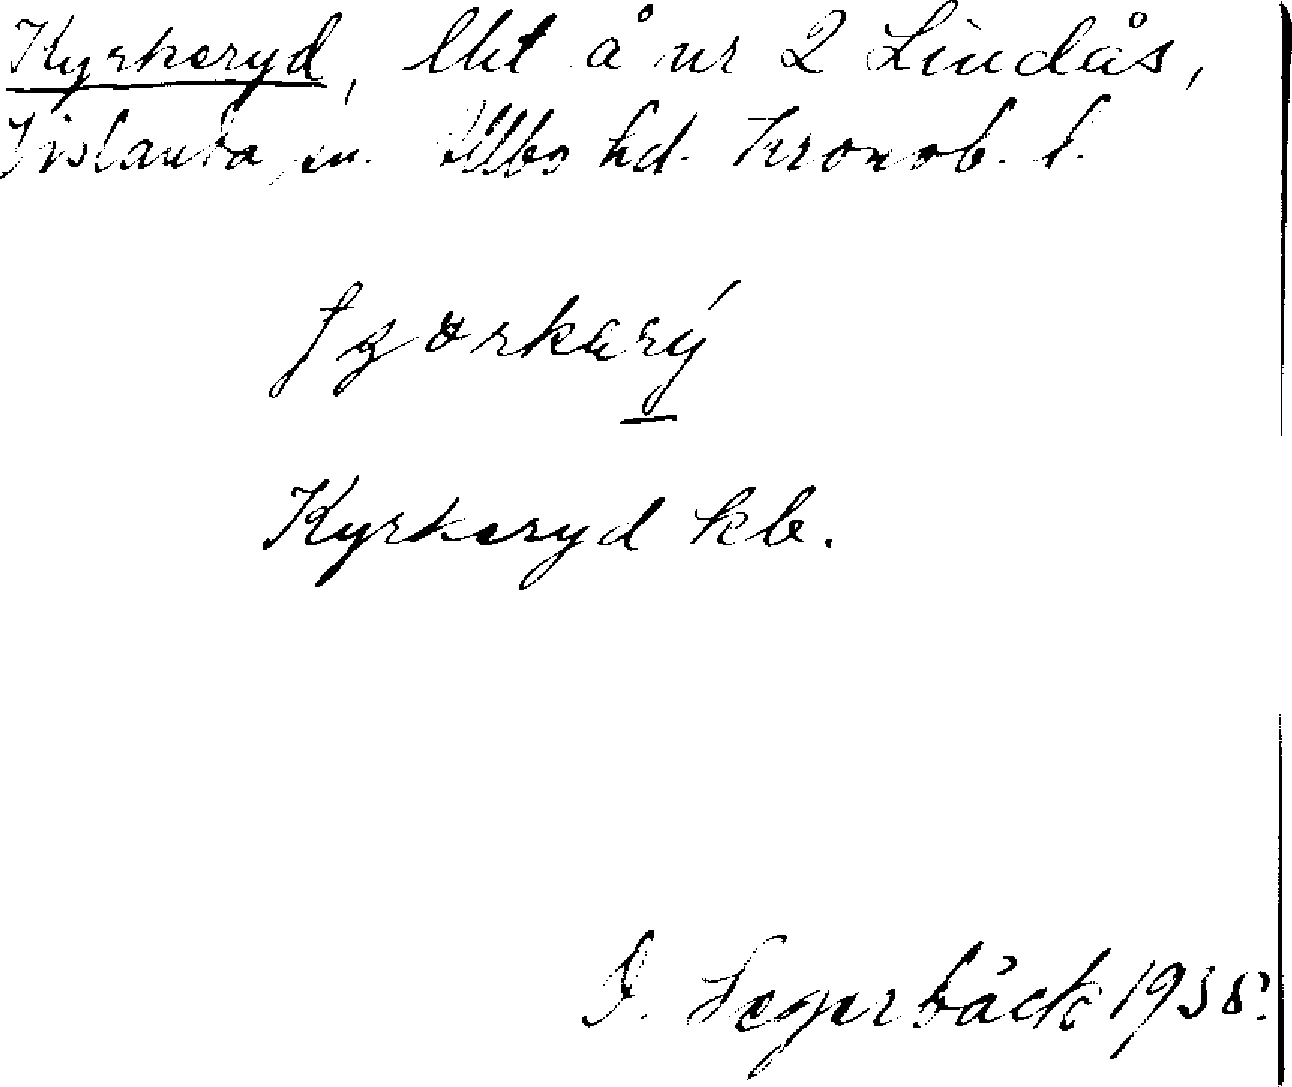 Kyrkeryd, lht å nr 2 Lindås,
Vislanda, sn. Allbo hd. Kronob. l.
Kyrkeryd kb.
I. Segerbäck 1935.